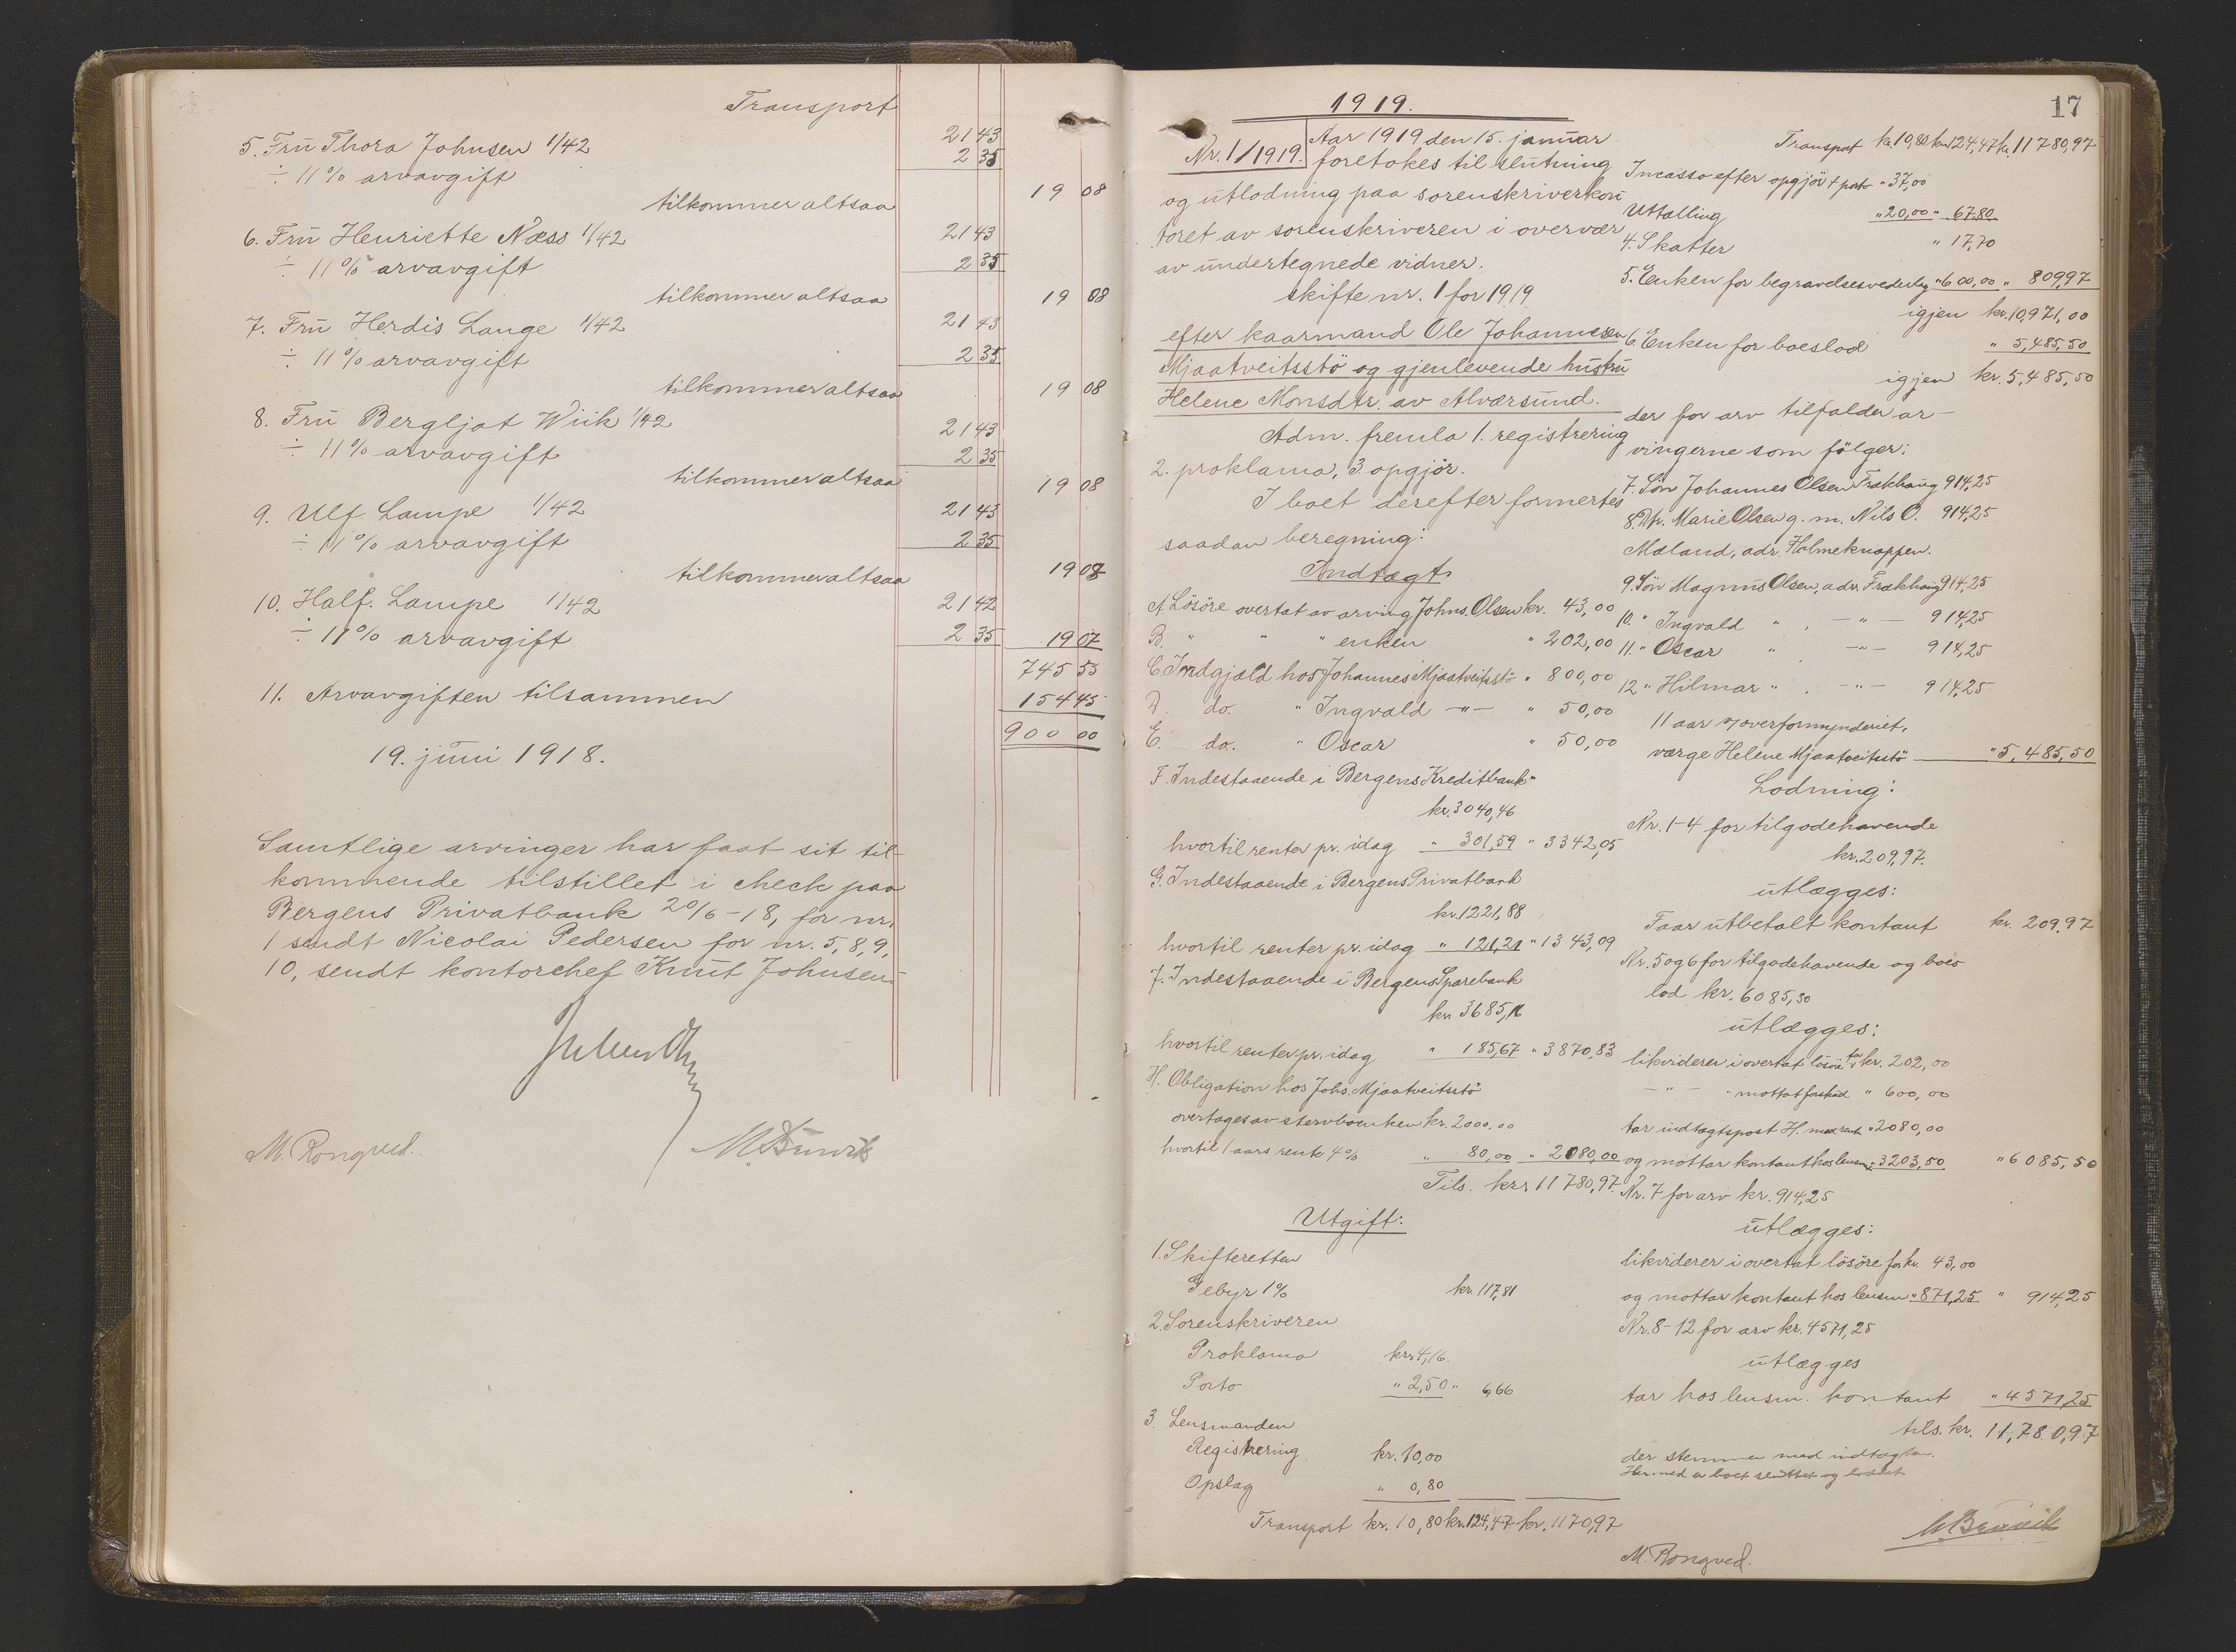 Transport
5. Frū Thora Johnsen 1/42 21 43
÷ 11% arvavgift 2 35
tilkommer altsaa 19 08
6. Frū Henriette Næss 1/42 21 43
÷ 11% arvavgift 2 35
tilkommer altsaa 19 08
7. Frū Herdis Lange 1/42 21 43
÷ 11% arvavgift 2 35
tilkommer altsaa 19 08
8. Frū Bergljot Wiik 1/42 21 43
÷ 11% arvavgift 2 35
tilkommer altsaa 19 08
9. Ulf Lampe 1/42 21 43
÷ 11% arvavgift 2 35
tilkommer altsaa 19 08
10. Half. Lampe 1/42 21 42
÷ 11% arvavgift 2 35 19 07
745 55
11. Arvavgiften tilsammen 154 45
900 00
19. jūni 1918.
Samtlige arvinger har faat sit til-
kommende tilstillet i check paa
Bergens Privatbank 20/6-18, for nr.
1 sendt Nicolai Pedersen for nr. 5, 8, 9,
10, sendt kontorchef Knūt Johnsen.
M. Rongved.
17
1919.
Nr. 1/1919. Aar 1919 den 15. janūar
foretokes til slūtning
og ūtlodning paa sorenskriverkon
toret av sorenskriveren i overvær
av ūndertegnede vidner.
skifte nr. 1 for 1919
efter kaarmand Ole Johannesen
Mjaatveitsstö og gjenlevende hūstrū
Helene Monsdtr. av Alværsūnd.
Adm. fremla 1. registrering
2. proklama, 3. opgjör.
I boet derefter formertes
saadan beregning:
Indtægt
A Lösöre overtat av arving Johns. Olsen kr. 43,00
B " " " enken " 202,00
C. Indgjæld hos Johannes Mjaatveitsstö " 800,00
D. do. " Ingvald -"- " 50,00
E. do. " Oscar " 50,00
F. Indestaaende i Bergens Kreditbank
kr. 3040,46
hvortil renter pr. idag " 301,59 " 3342,05
G. Indestaaende i Bergens Privatbank
kr. 1221,88
hvortil renter pr. idag " 121,21 " 1343,09
7. Indestaaende i Bergens Sparebank
kr. 3685,16
hvortil renter pr. idag " 185,67 " 3870,83
H. Obligation hos Johs. Mjaatveitsstö
overtages av stervboenken kr. 2000.00
hvortil 1 aars rente 4% " 80,00 " 2080,00
Tils. kr. 11780,97
Utgift:
1. Skifteretten
Gebyr 1% kr. 117,81
2. Sorenskriveren
Proklama kr. 4,16.
Porto " 2,50 " 6,66
3. Lensmanden
Registrering kr. 10,00
Opslag " 0,80
Transport kr. 10,80 kr. 124,47 kr. 11780,97
Transport kr. 10,80 kr. 124,47 kr. 11780,97
Incasso efter opgjör + porto " 37,00
Uttalling " 20,00 " 67,80
4. Skatter " 17,70
5. Enken for begravelsesvederlag " 600,00 " 809,97
igjen kr. 10,971,00
6. Enken for boeslod " 5,485,50
igjen kr. 5,485,50
der for arv tilfalder ar-
vingerne som fölger:
7. Sön Johannes Olsen Frækhaug 914,25
8. Dtr. Marie Olsen g. m. Nils O. 914,25
Mæland, adr. Holmeknappen.
9. Sön Magnūs Olsen, adr. Frækhaug 914,25
10. " Ingvald " , -"- 914,25
11. " Oscar " , -"- 914,25
12 " Hilmar " , -"- 914,25
11 aar overformynderiet.
værge Helene Mjaatveitsstö " 5,485,50
Lodning:
Nr. 1-4 for tilgodehavende
kr. 209,97.
ūtlægges:
Faar ūtbetalt kontant kr. 209,97
Nr. 5 og 6 for tilgodehavende og boes
lod kr. 6085,50
ūtlægges:
likviderer i overtat lösöre for kr. 202,00
-"- - mottat forskud " 600,00
tar indtægtspost H. med rente " 2080,00
og mottar kontant hos lensm. " 3203,50 " 6085,50
Nr. 7 for arv kr. 914,25
ūtlægges:
likviderer i overtat lösöre for kr. 43,00
og mottar kontant hos lensm " 871,25 " 914,25
Nr. 8-12 for arv kr. 4571,25
ūtlægges
tar hos lensm. kontant " 4571,25
tils. kr. 11,780,97
der stemmer med indtægten.
Hermed er boet slūttet og loddet
M. Rongved.